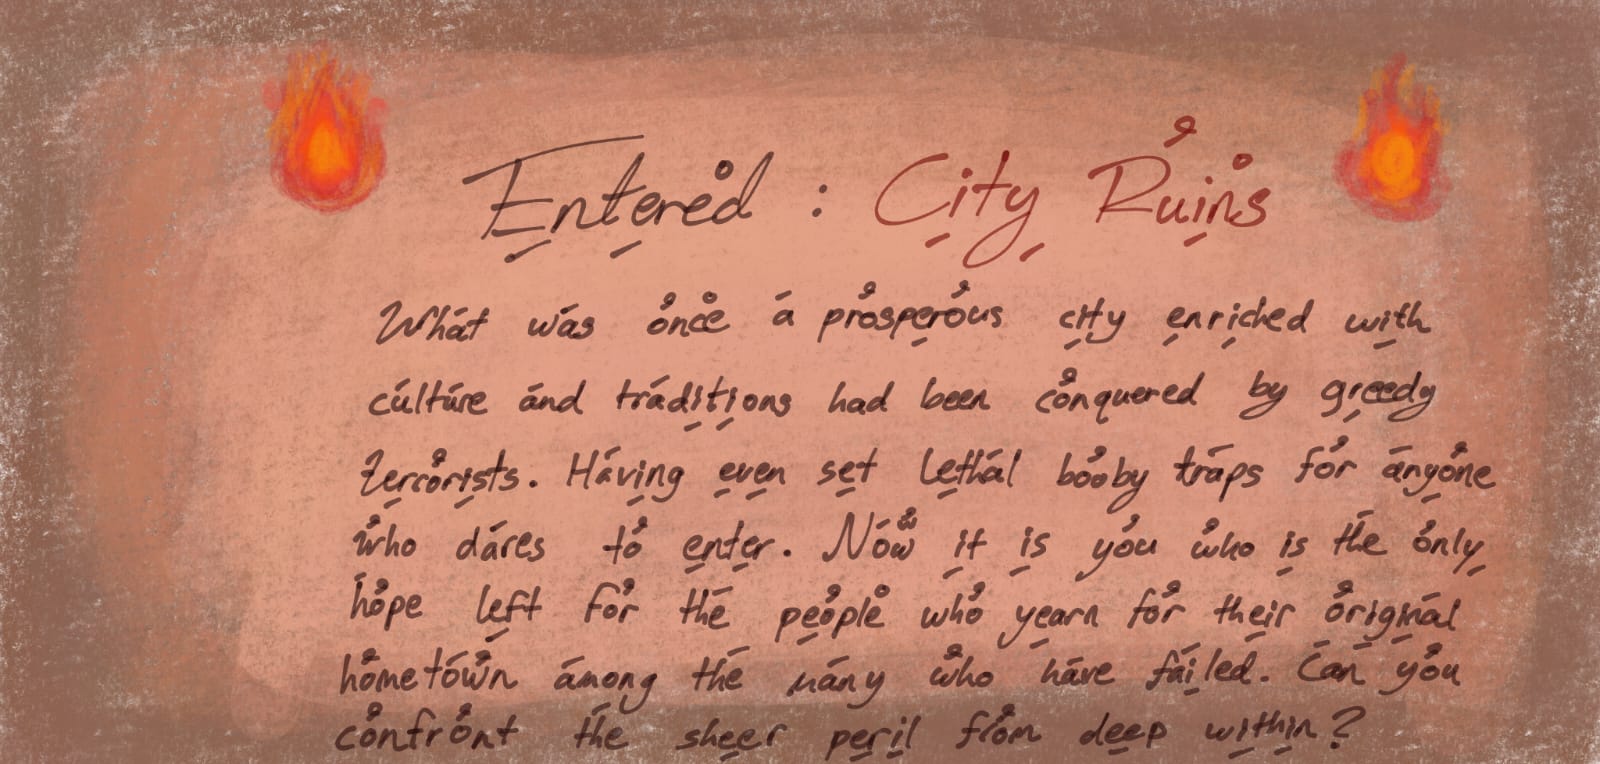 Entered : City Ruins
What was once a prosperous city enriched with
culture and traditions had been conquered by greedy
terrorists. Having even set lethal booby traps for anyone
who dares to enter. Now it is you who is the only
hope left for the people who yearn for their original
hometown among the many who have failed. Can you
confront the sheer peril from deep within?